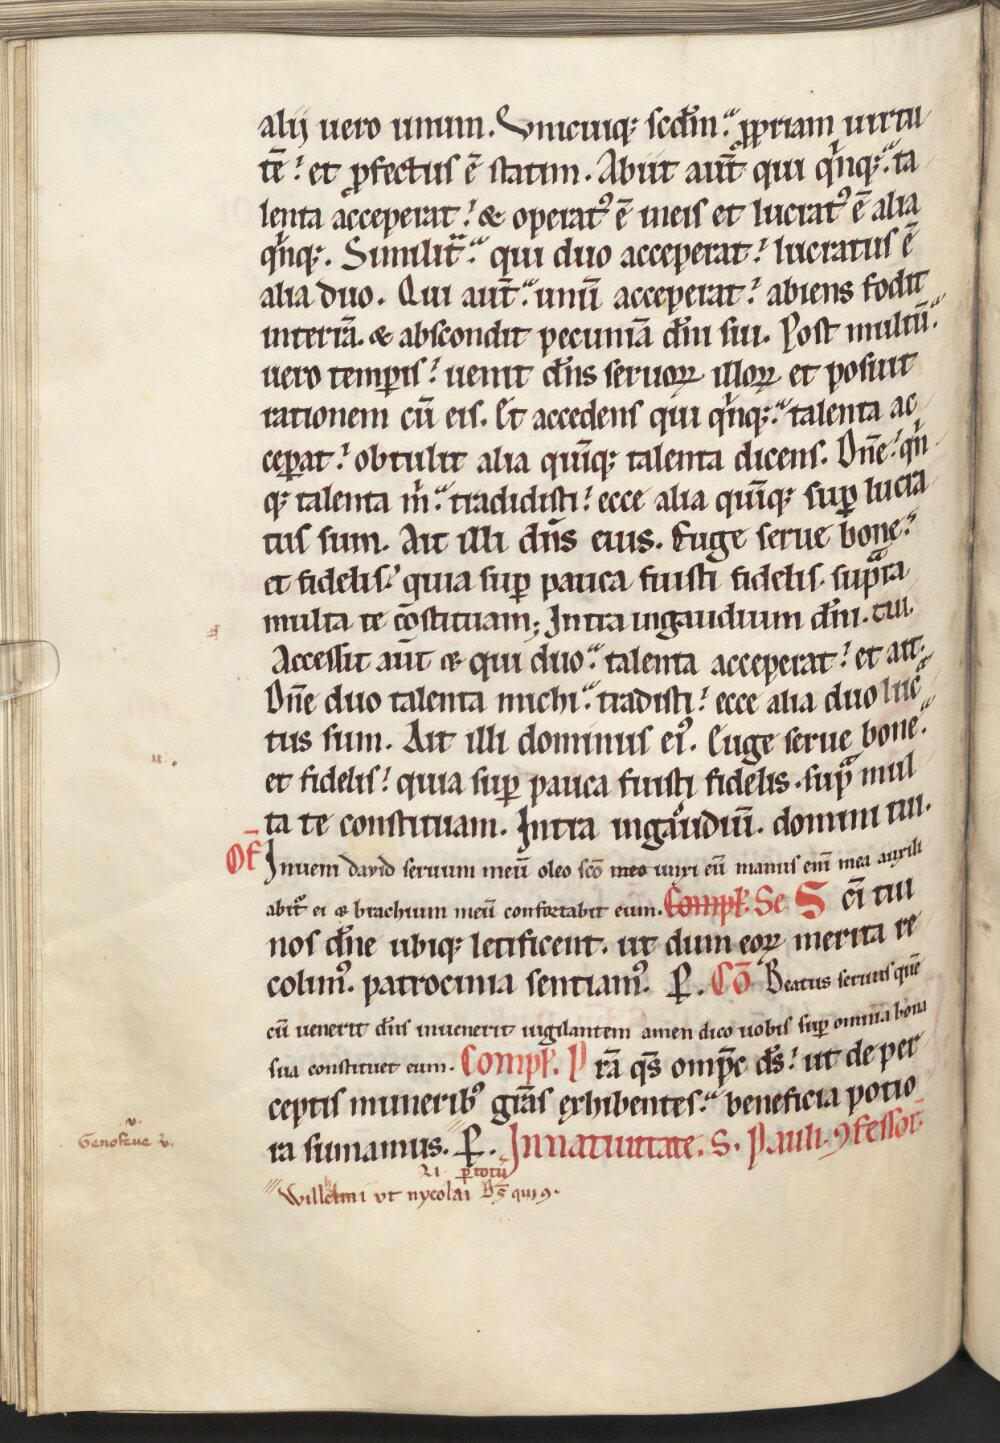 alij uero unum. Vnicuiq; scd̄m. ꝓpriam uirtu
tē. et ꝓfectus ē statim. Abiit aut̄ qui qͥnq;. ta
lenta acceperat. & operatꝰ ē in eis et lucratꝰ ē alia
qͥnq;. Similit̄. qui duo acceperat. lucratus ē
alia duo. Qui aut̄. unū acceperat. abiens fodit
in terrā. & abscondit pecuniā dn̄i sui. Post multū.
uero temꝑis. uenit dn̄s seruoꝝ illoꝝ et posuit
rationem cū eis. Et accedens qui qͥnq;. talenta ac
ceꝑat. obtulit alia quīq; talenta dicens. Dn̄e. qͥn
q; talenta m̄. tradidisti. ecce alia quīq; suꝑ lucra
tus sum. Ait illi dn̄s eius. Euge serue bone.
et fidelis. quia suꝑ pauca fuisti fidelis. supͣ ta
multa te cōstituam; Intra in gaudium dn̄i. tui.
Accessit aut̄ & qui duo. talenta acceperat. et ait.
Dn̄e duo talenta michi. tradisti. ecce alia duo lucͣ
tus sum. Ait illi dominus eiꝰ. Euge serue bone.
et fidelis. quia suꝑ pauca fuisti fidelis. supͣ mul
ta te constituam. Intra in gaudiū. domini tui.
Of̄ Inueni dauid seruum meū oleo sc̄o meo unxi eū manus enī mea auxili
abitͬ ei & brachium meū confortabit eum. Compl̄. Se. S c̄i tui
nos dn̄e ubiq; letificent. ut dum eoꝝ merita re
colimꝰ. patrocinia sentiamꝰ. P. Cō Beatus seruus quē
cū uenerit dn̄s inuenerit uigilantem amen dico uobis suꝑ omnia bona
sua constituet eum. Compl̄. P rā qs̄ omp̄c ds̄. ut de per
ceptis muneribꝰ grās exhibentes. beneficia potio
ra sumamus. P. In natiuitate. S. Pauli. ꝯfessor.
v.
Genofeue v.
Al ꝑ totū
Willelmi vt nycolai Ds̄ qui ꝯ.